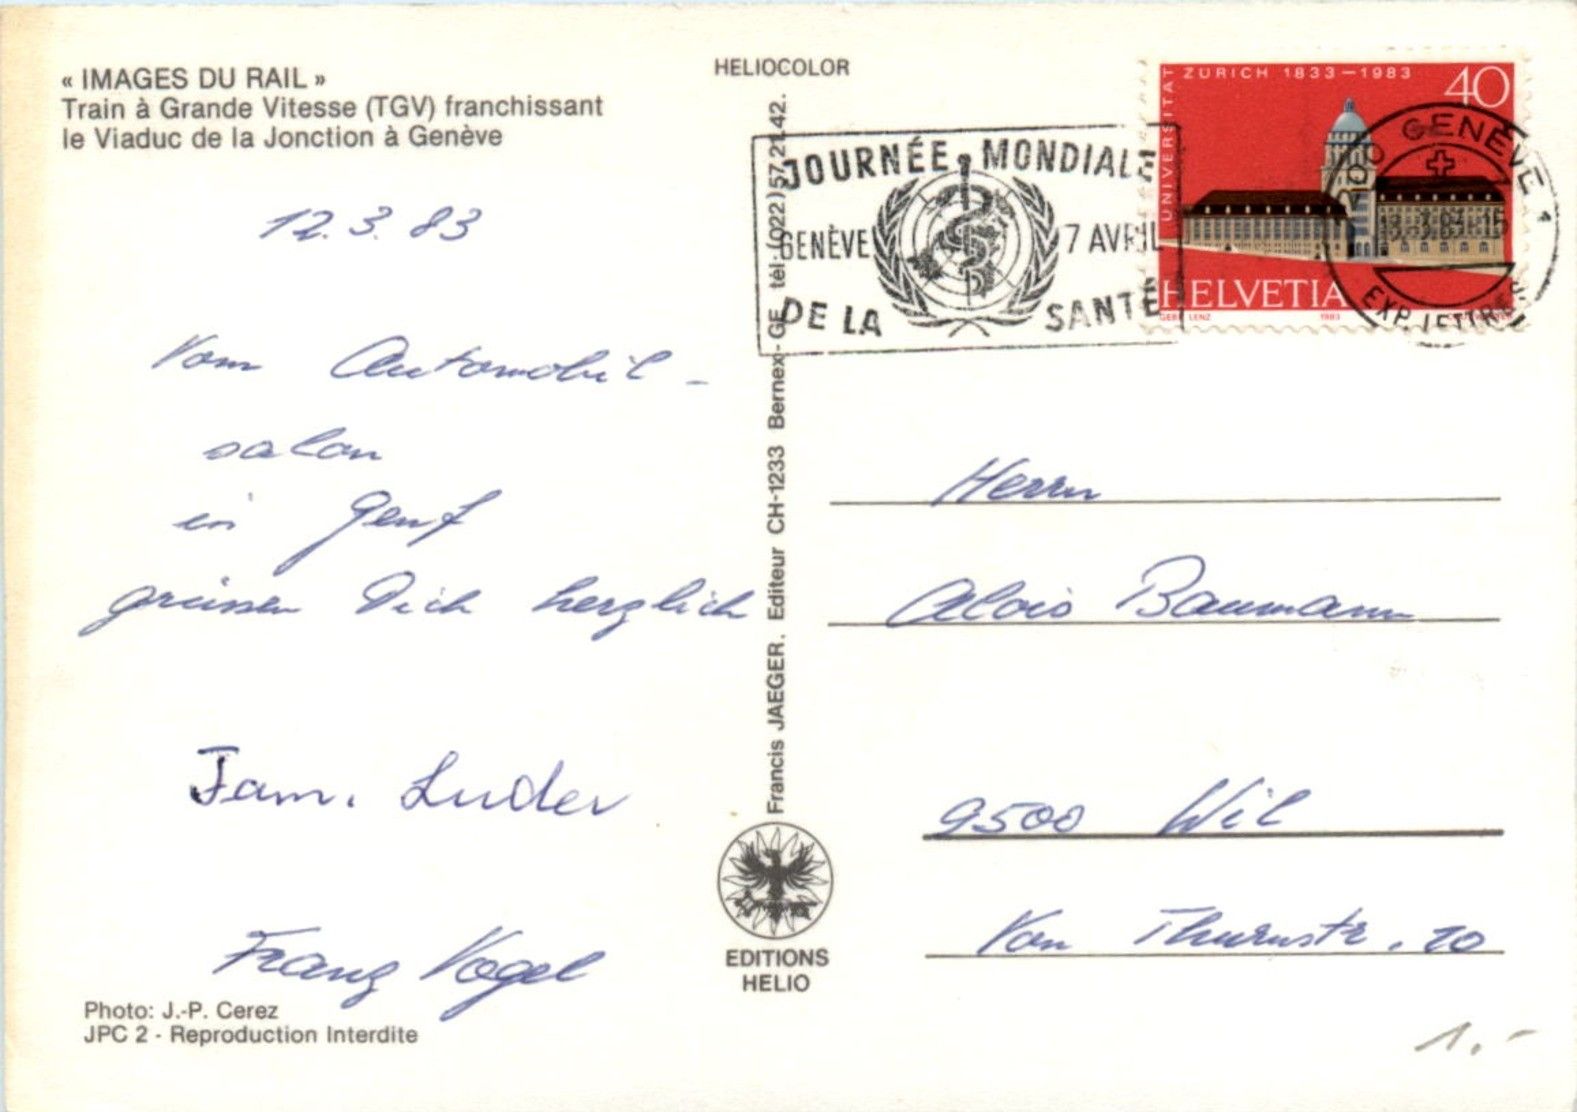 « IMAGES DU RAIL »
Train à Grande Vitesse (TGV) franchissant
le Viaduc de la Jonction à Genève
12.3.83
Vom Automobil-
salon
in Genf
grüssen Dich herzlich
Fam. Luder
Franz Vogel
Photo: J.-P. Cerez
JPC 2 - Reproduction Interdite
HELIOCOLOR
Francis JAEGER. Editeur CH-1233 Bernex-GE tél. (022) 57.21.42.
EDITIONS
HELIO
JOURNÉE MONDIALE
GENÈVE 7 AVRIL
DE LA SANTÉ
UNIVERSITÄT ZÜRICH 1833–1983
40
HELVETIA
LENZ 1983
GENÈVE 1
EXP. LETTRES
Herrn
Alois Baumann
9500 Wil
Von Thurnstr. 20
1.-